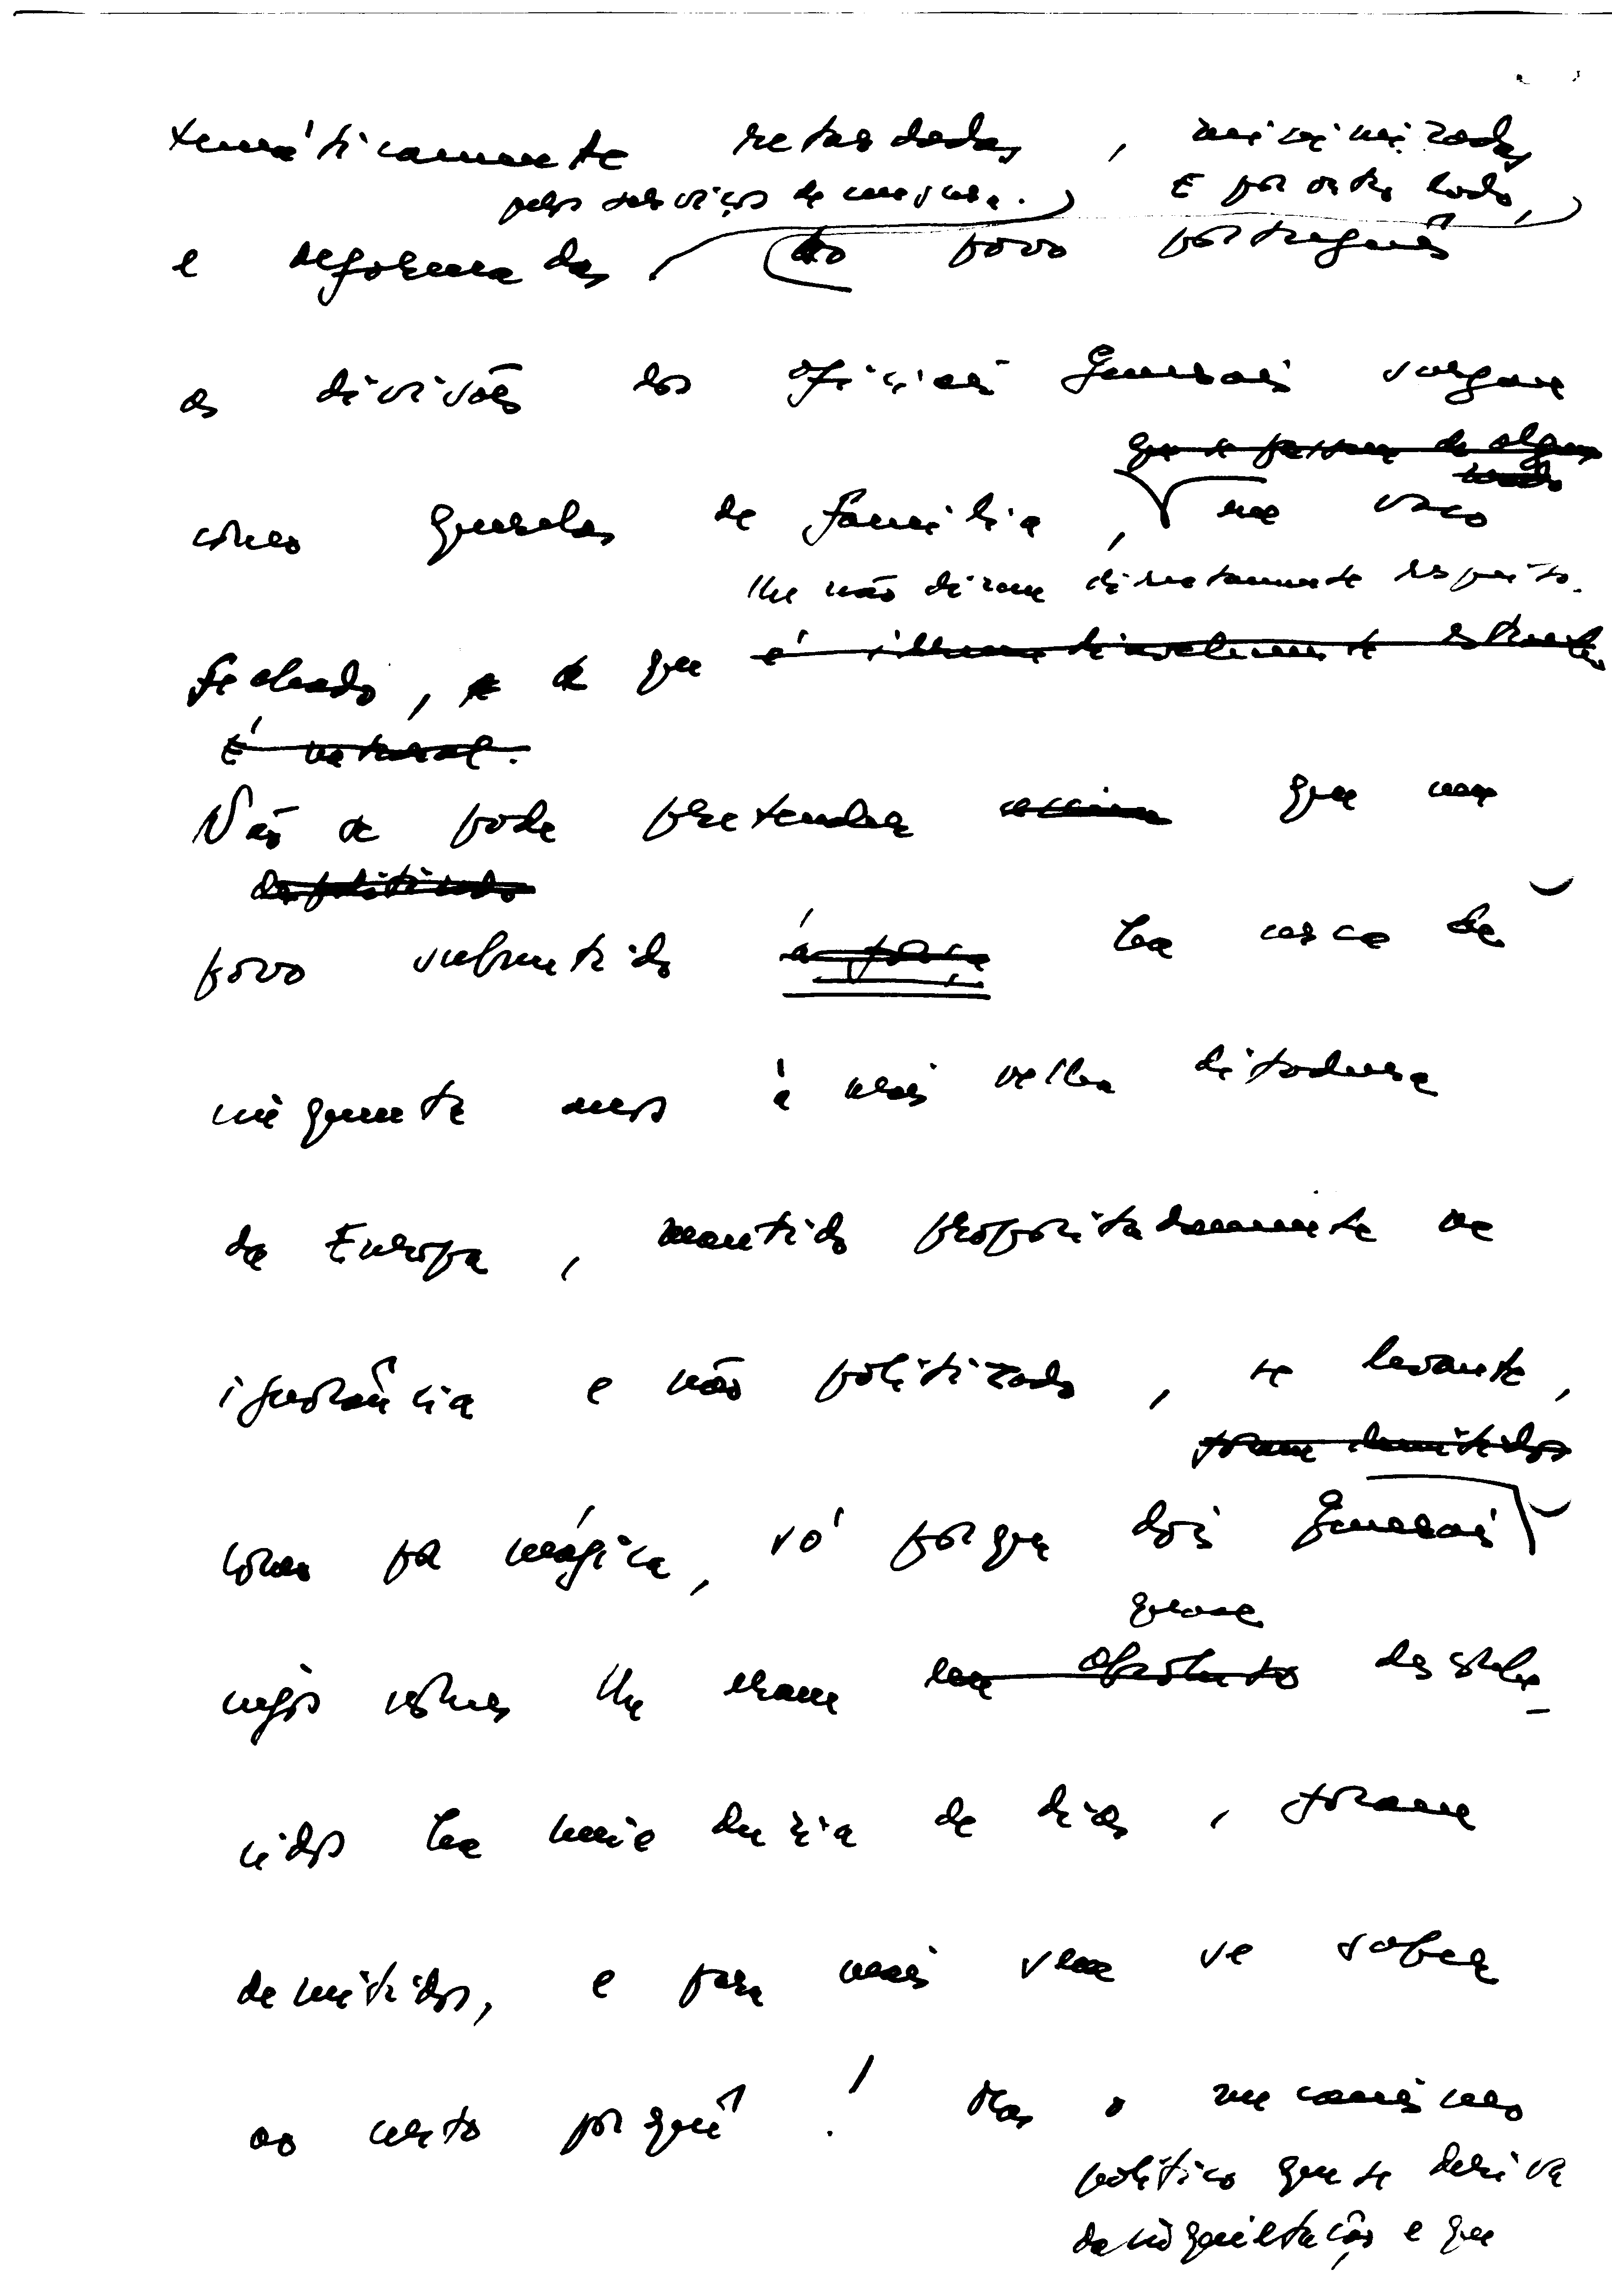 temáticamente retardadas, minimizadas
pelos serviços de censura. E por outro lado,
e deformadas. Ao povo português
as divisões dos oficiais Generais surgem
que se passam de algum
modo
como querelas de família, em vaso
lhe não dizem directamente respeito.
fechado, e que é
É natural.
Não se pode pretender assim que um
despolitizado
povo submetido à força há cerca de
cinquenta anos à mais velha ditadura
da Europa, mantido propositadamente na
ignorância e não politizado, se levante,
foram demitidos
como por mágica, só porque dois Generais
quase
cujos nomes lhe eram em absoluto desconhe-
cidos há meia dúzia de dias, foram
demitidos, e para mais sem se saber
ao certo porquê! Mas o mecanismo
político que se deriva
da inquietação e que